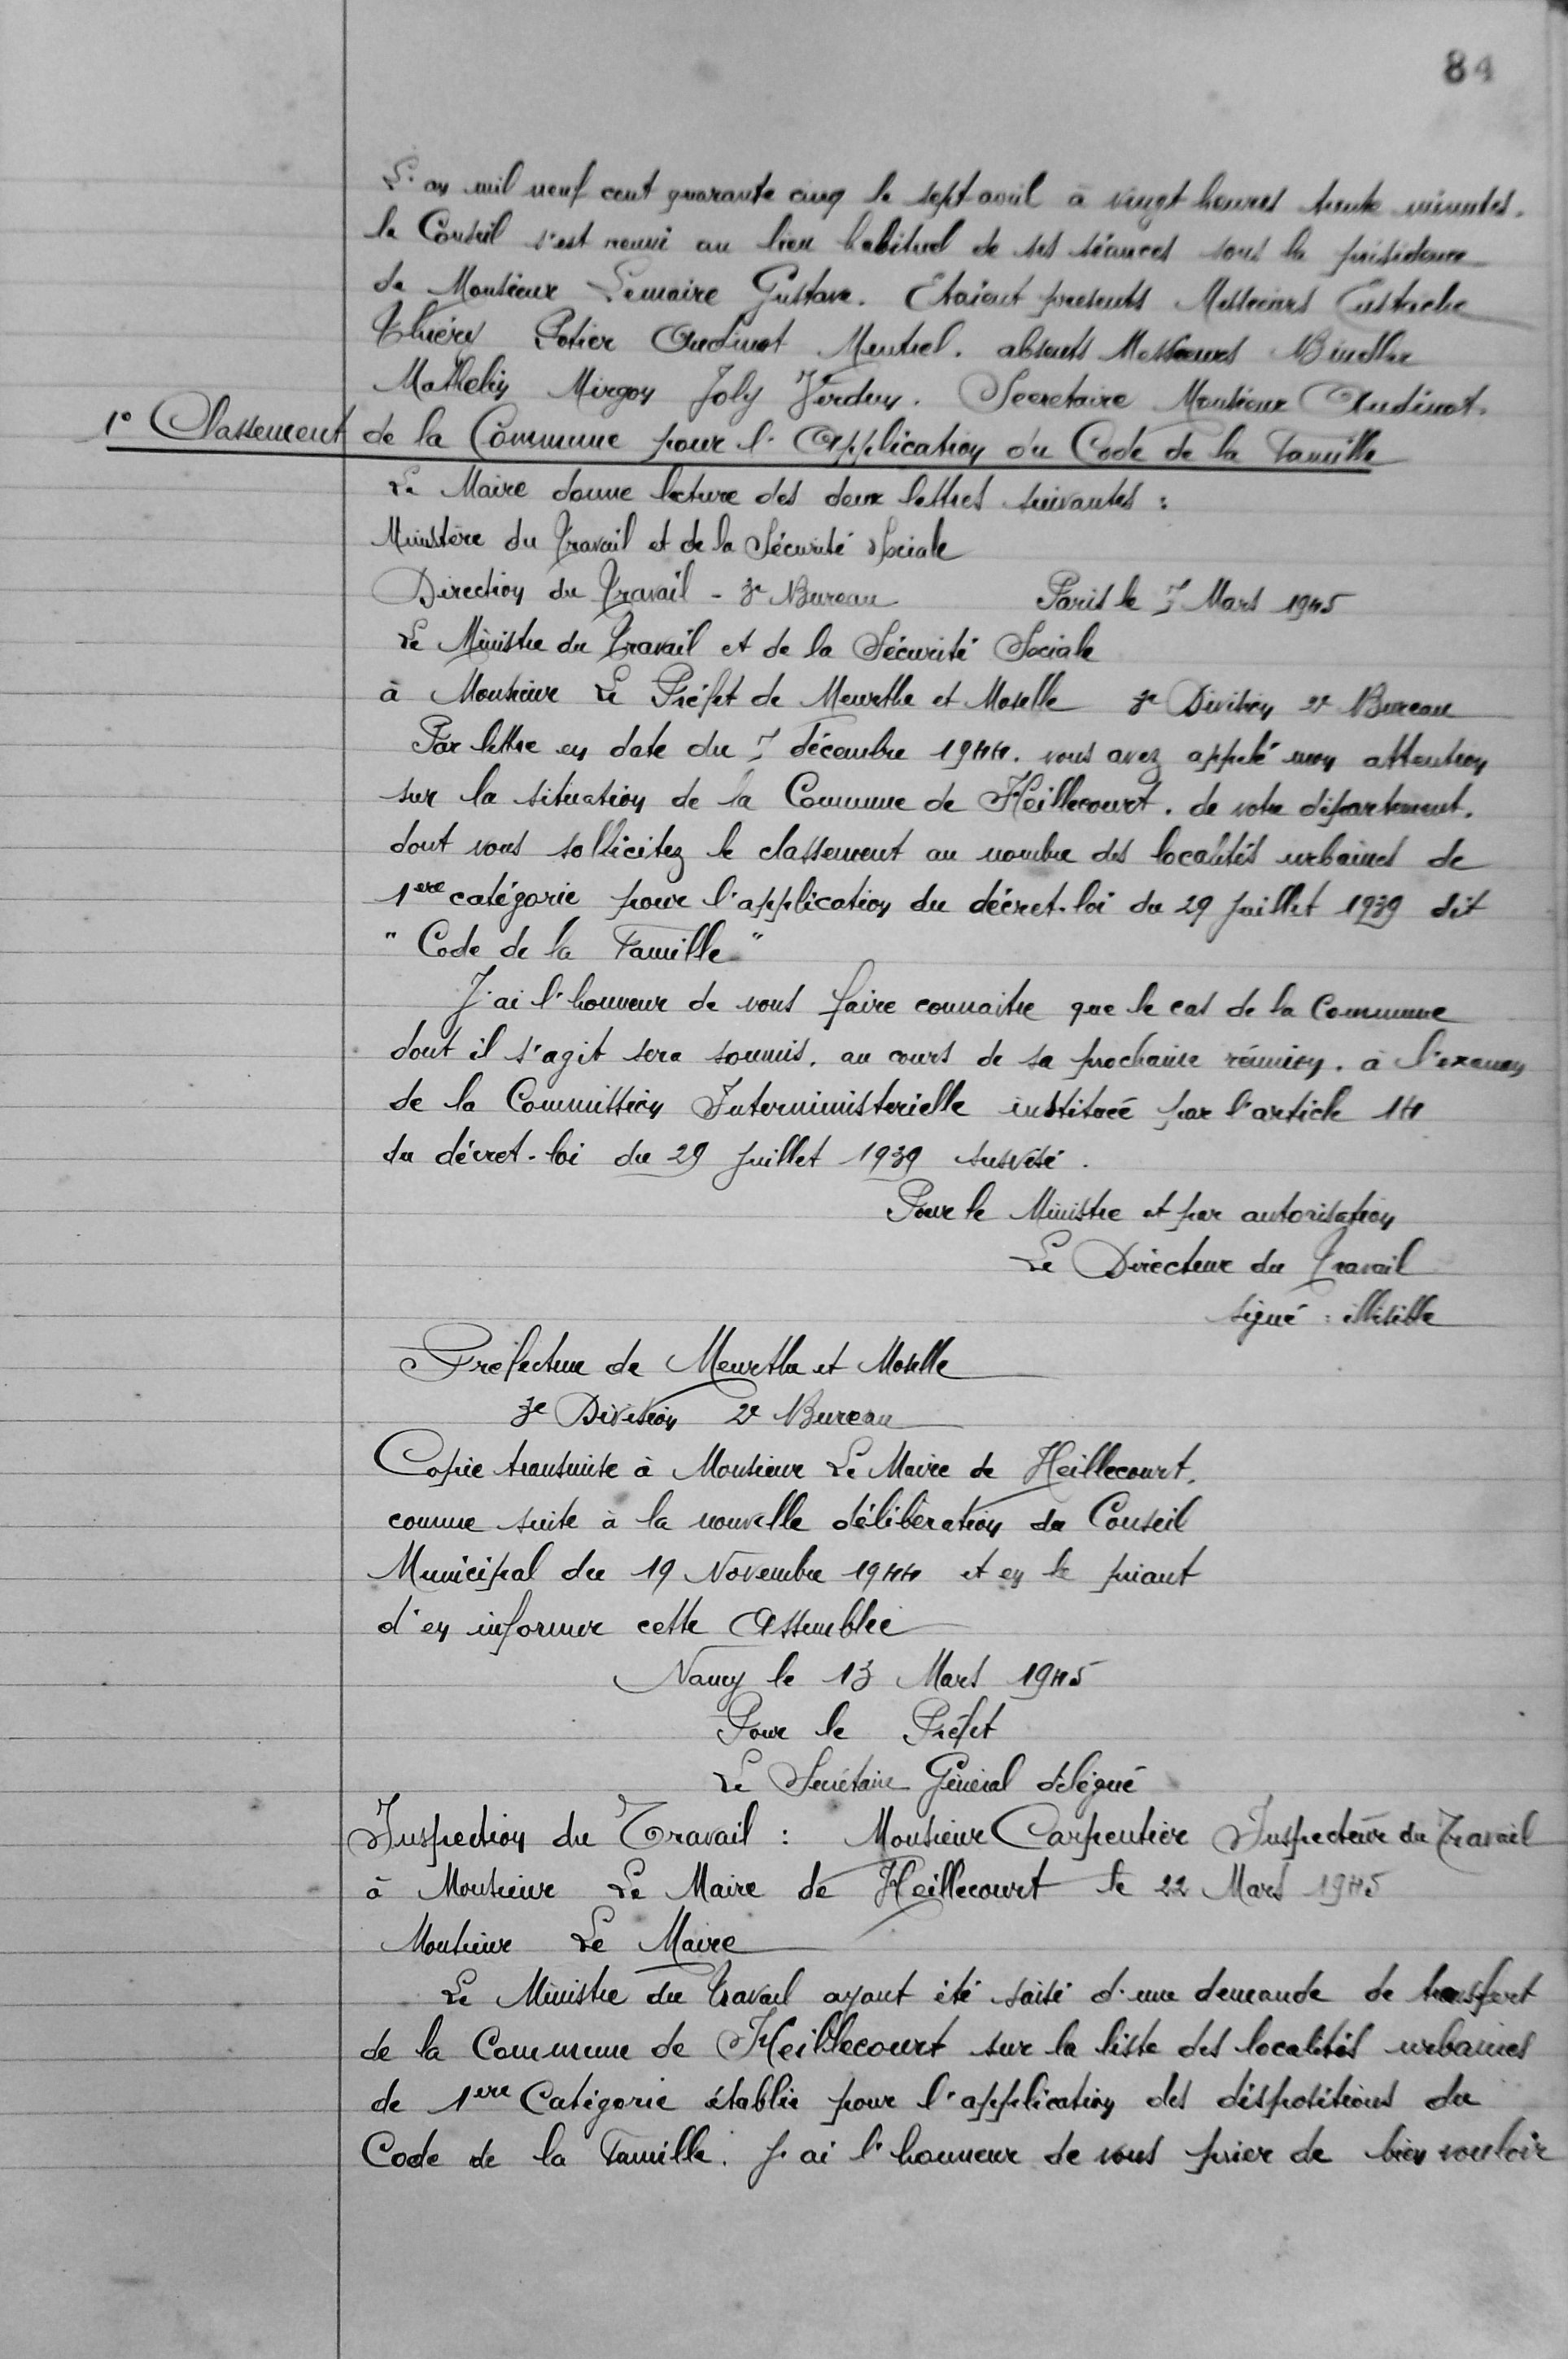 84
L'an mil neuf cent quarante cinq le sept avril à vingt heures trente minutes.
le Conseil s'est reuni au lieu habituel de ses séances sous la présidence
de Monsieur Lemaire Gustave. Etaient presents Messieurs Eustache
Thiéry Potier Oudinot Mentrel. absents Messieurs Bindler
Mathelin Mirgon Joly Verdun. Secretaire Monsieur Oudinot.
1° Classement de la Commune pour l'Application du Code de la Famille
Le Maire donne lecture des deux lettres suivantes :
Ministère du Travail et de la Sécurité Sociale
Direction du Travail - 3e Bureau Paris le 7 Mars 1945
Le Ministre du Travail et de la Sécurité Sociale
à Monsieur Le Préfet de Meurthe et Moselle 3e Division 2e Bureau
Par lettre en date du 7 décembre 1944. vous avez appelé mon attention
sur la situation de la Commune de Heillecourt. de votre département.
dont vous sollicitez le classement au nombre des localités urbaines de
1ere catégorie pour l'application du décret-loi du 29 Juillet 1939 dit
" Code de la Famille "
J'ai l'honneur de vous faire connaitre que le cas de la Commune
dont il s'agit sera soumis. au cours de sa prochaine réunion. à l'examen
de la Commission Interministerielle instituée par l'article 14
du décret-loi du 29 Juillet 1939 susvisé.
Pour le Ministre et par autorisation
Le Directeur du Travail
signé : illisible
Préfecture de Meurthe et Moselle
3e Division 2e Bureau
Copie transmise à Monsieur Le Maire de Heillecourt.
comme suite à la nouvelle délibération du Conseil
Municipal du 19 Novembre 1944 et en le priant
d'en informer cette Assemblée
Nancy le 13 Mars 1945
Pour le Préfet
Le Secrétaire Général délégué
Inspection du Travail : Monsieur Carpentier Inspecteur du Travail
à Monsieur Le Maire de Heillecourt le 22 Mars 1945
Monsieur Le Maire
Le Ministre du Travail ayant été saisi d'une demande de transfert
de la Commune de Heillecourt sur la liste des localités urbaines
de 1ere Catégorie établie pour l'application des dispositions du
Code de la Famille. J'ai l'honneur de vous prier de bien vouloir